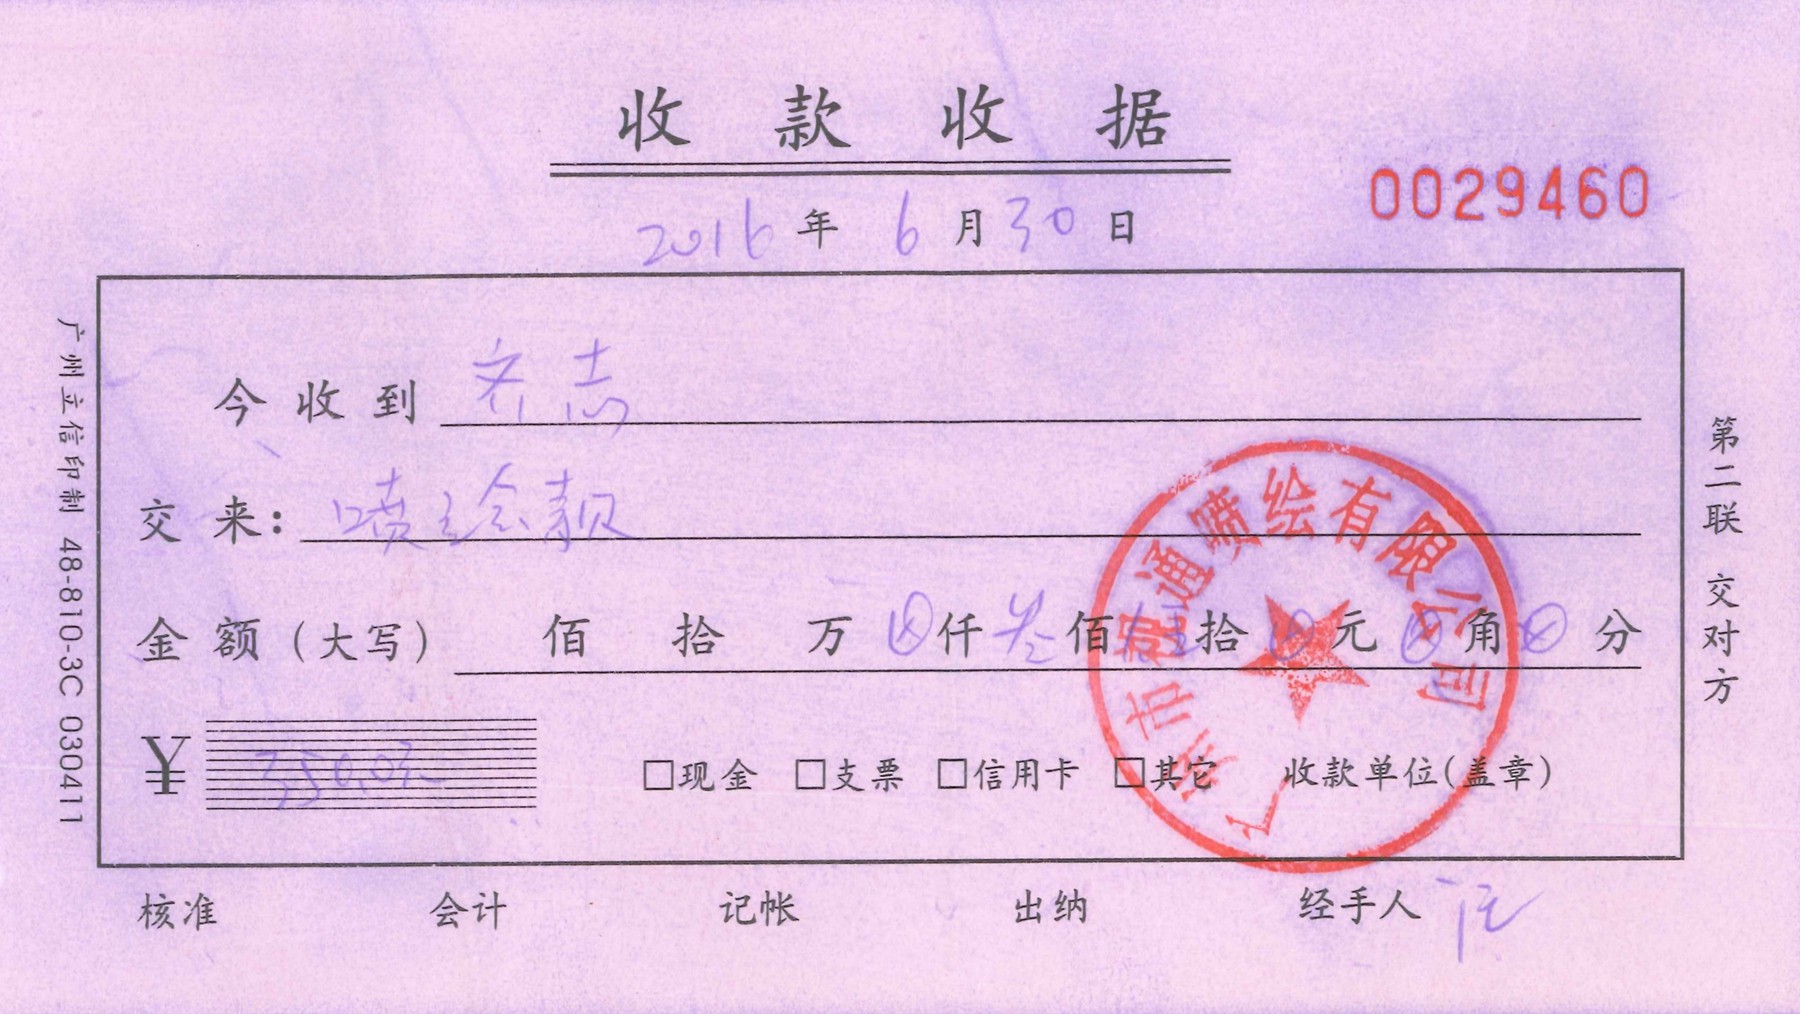 收款收据
0029460
2016年6月30日
今收到 齐志
交来: 喷绘款
金额(大写) 佰 拾 万 仟叁佰伍拾 元 角 分
¥ 350.00
□现金 □支票 □信用卡 □其它 收款单位(盖章)
核准 会计 记帐 出纳 经手人
广州立信印制 48-810-3C 030411
第二联 交对方
广州市 通喷绘有限公司